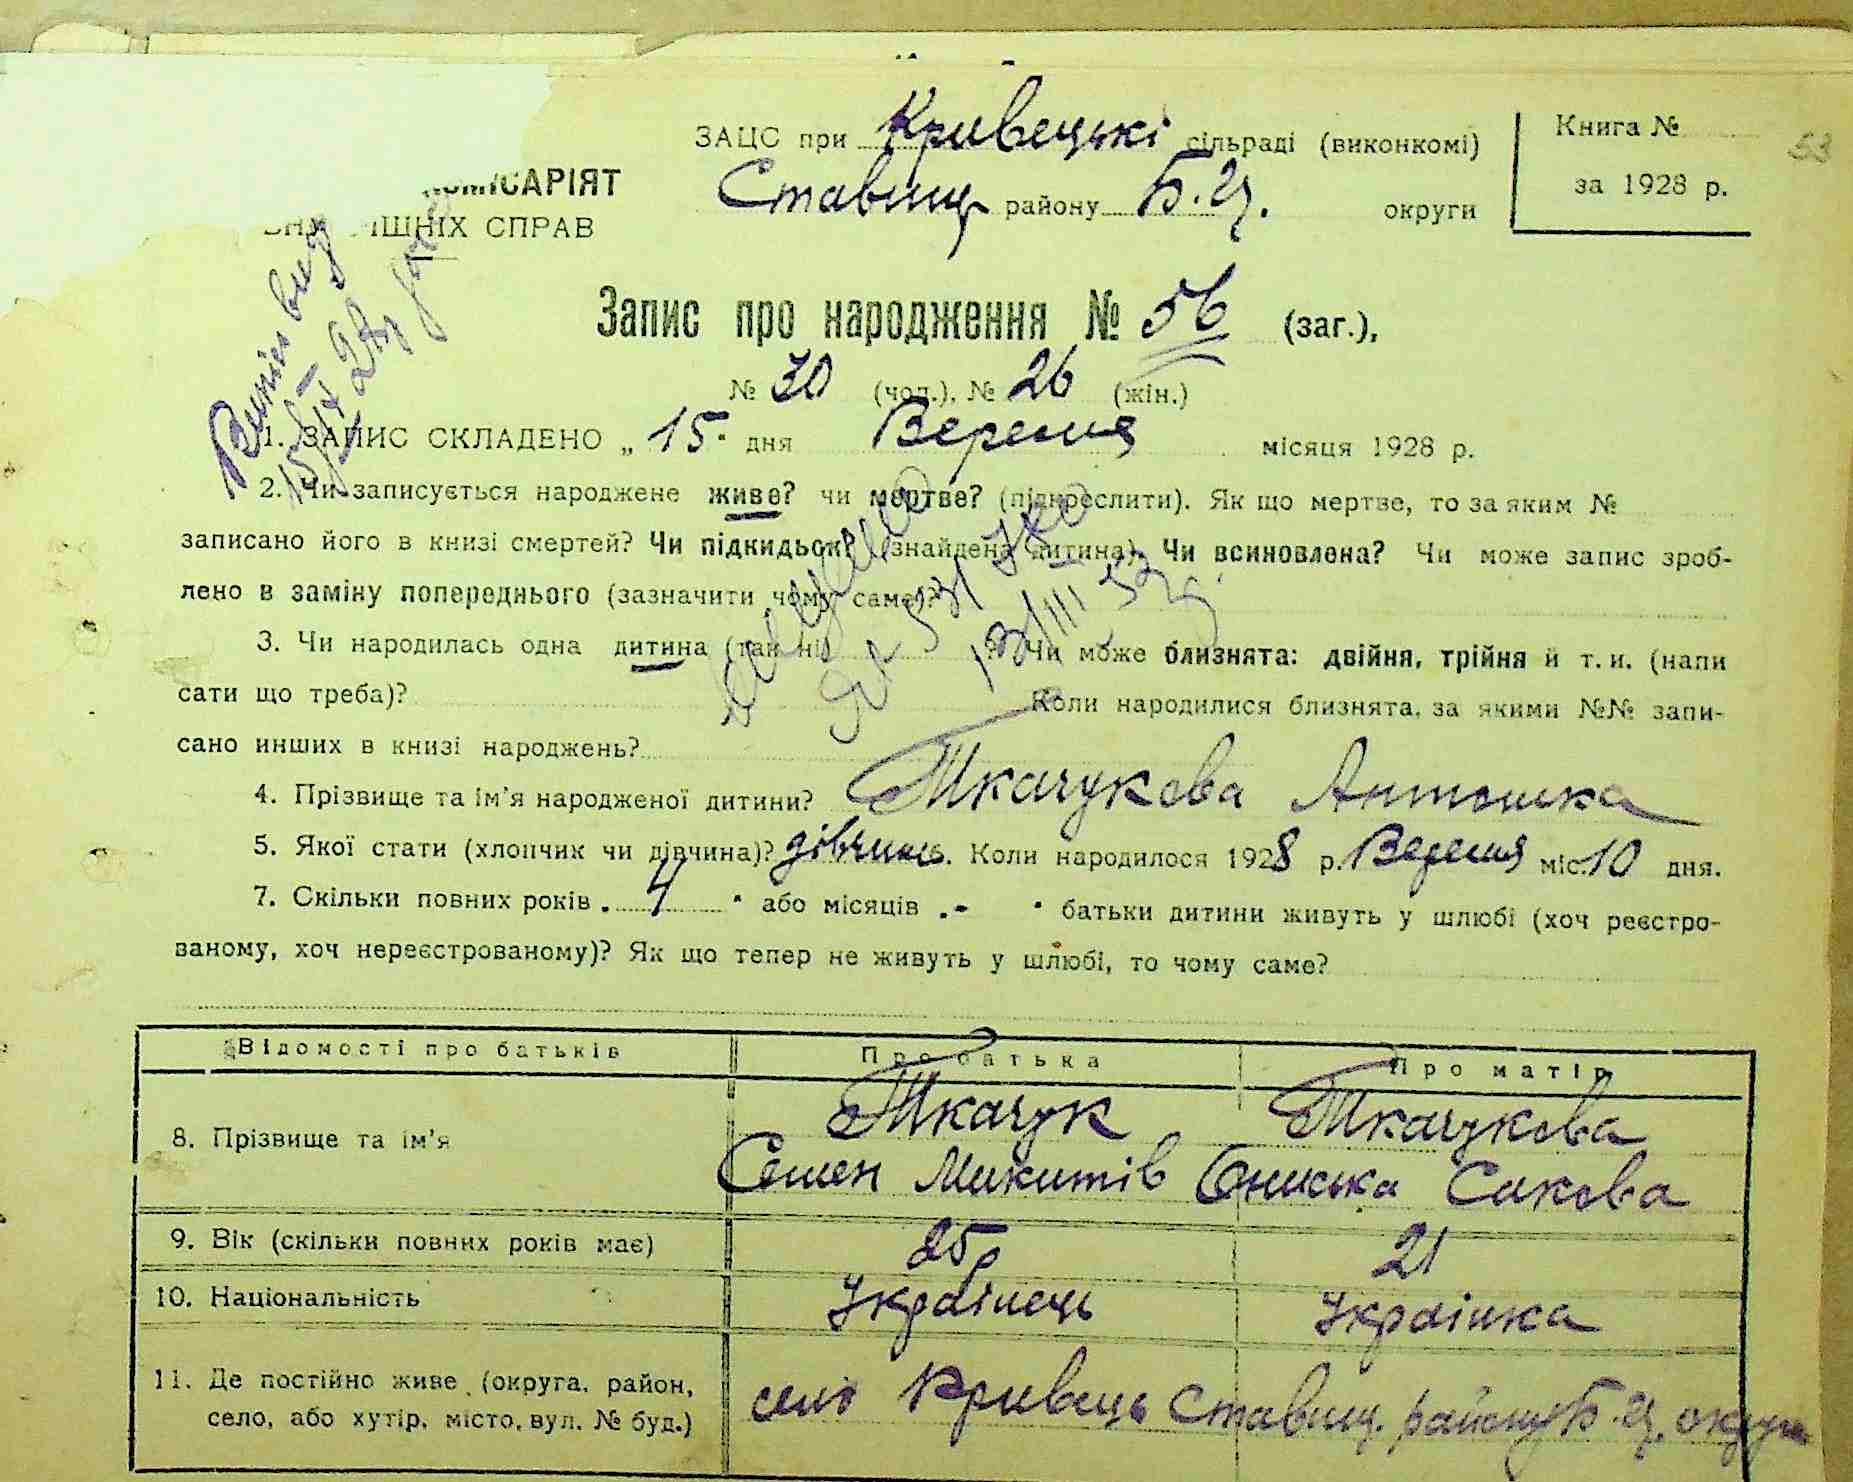 ЗАЦС при Кривецькі сільраді (виконкомі)
Ставищ району Б. Ц. округи
Книга №
за 1928 р.
53
КОМІСАРІЯТ
ВНУТРІШНІХ СПРАВ
Запис про народження № 56 (заг.),
№ 30 (чол.), № 26 (жін.)
1. ЗАПИС СКЛАДЕНО „ 15 " дня Вересня місяця 1928 р.
2. Чи записується народжене живе? чи мертве? (підкреслити). Як що мертве, то за яким №
записано його в книзі смертей? Чи підкидьок? (знайдена дитина). Чи всиновлена? Чи може запис зроб-
лено в заміну попереднього (зазначити чому саме)?
3. Чи народилась одна дитина (так ні) ? Чи може близнята: двійня, трійня й т. и. (напи
сати що треба)? Коли народилися близнята, за якими №№ запи-
сано инших в книзі народжень?
4. Прізвище та ім'я народженої дитини? Ткачукова Антошка
5. Якої стати (хлопчик чи дівчина)? дівчина. Коли народилося 1928 р. Вересня міс. 10 дня.
7. Скільки повних років „ 4 " або місяців „ - " батьки дитини живуть у шлюбі (хоч реєстро-
ваному, хоч нереєстрованому)? Як що тепер не живуть у шлюбі, то чому саме?
Відомості про батьків Про батька Про матір
8. Прізвище та ім'я Ткачук Ткачукова
Семен Микитів Ониська Сакова
9. Вік (скільки повних років має) 25 р 21
10. Національність Українець Українка
11. Де постійно живе (округа, район,
село, або хутір, місто, вул. № буд.)
село Кривець Ставищ. району Б. Ц. округи